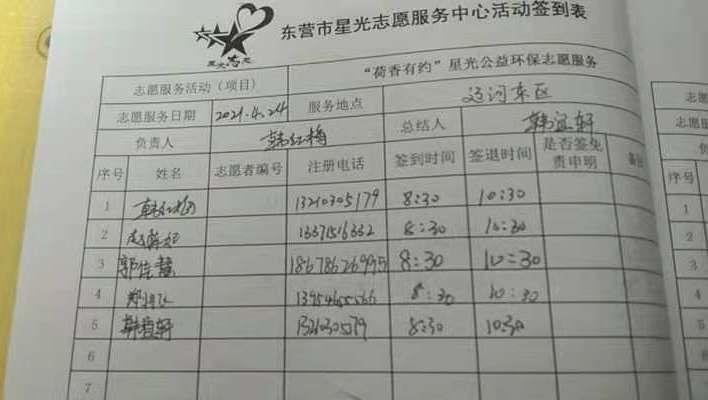 东营市星光志愿服务中心活动签到表
星光志愿
志愿服务活动（项目） “荷香有约”星光公益环保志愿服务
志愿服务日期 2021.4.24 服务地点 运河东区
负责人 韩红梅 总结人 韩谊轩
序号 姓名 志愿者编号 注册电话 签到时间 签退时间 是否签免责申明 备
1 韩红梅 13210305179 8:30 10:30
2 8:30 10:30
3 郭佳慧 18678626995 8:30 10:30
4 8:30 10:30
5 韩谊轩 8:30 10:30
6
7
志愿
志愿服
负
序号
1
2
3
4
5